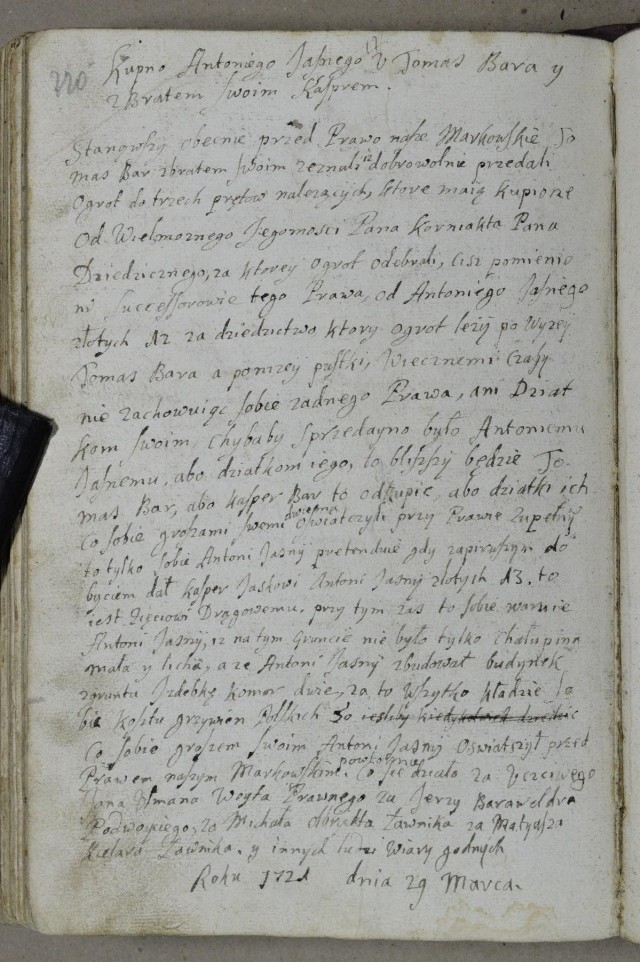 220
Kupno Antoniego Jasnego U Tomas Bara y
z Bratem swoim Kasprem.
Stanowszy obecnie przed Prawo nasze Markowskie To
mas Bar z bratem swoim zeznali iz dobrowolnie przedali
Ogrot do trzech prętow nalezących, ktore maią kupione
Od Wielmoznego Jegomosci Pana Korniakta Pana
Dziedzicznego, za ktorey ogrot odebrali, cisz pomienio
ni Successorowie tego Prawa, od Antoniego Jasnego
złotych 12 za dziedzictwo ktory ogrot lezy po wyzey
Tomas Bara a ponizey pustki, Wiecznemi Czasy
nie zachowuiąc sobie zadnego Prawa, ani Dziat
kom swoim, Chybaby Sprzedayno było Antoniemu
Jasnemu, abo dziatkom iego, to blizszy będzie To-
mas Bar, abo Kasper Bar to odkupic, abo dziatki ich
Co sobie groszami swemi dwiema Oswiatczyli przy Prawie Zupełny
to tylko sobie Antoni Jasny pretenduie gdy za pirwszym do
byciem dał Kasper Jaskowi Antoni Jasny złotych 13. to
iest Zięciowi Drągowemu, przy tym zas to sobie waruie
Antoni Jasny, iz na tym gruncie nie było tylko Chałupina
mała y licha, a ze Antoni Jasny zbudował budynek
z gruntu Izdebkę komor dwie, za to wszytko kładzie So
bie kosztu grzywien Polskich 30
Co sobie groszem swoim Antoni Jasny Oswiatczył przed
Prawem naszym Markowskim powtornie. Co się działo za Uczciwego
Jana Woyta Prawnego za Jerzy
Podwoyciego, za Michała Ławnika za Matysza
Kielara Ławnika. y innych ludzi Wiary godnych
Roku 1721 dnia 29 Marca.